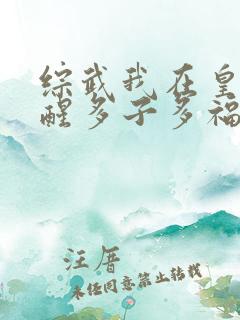 综武我在皇
醒多子多福
汪厝
未经同意禁止转载